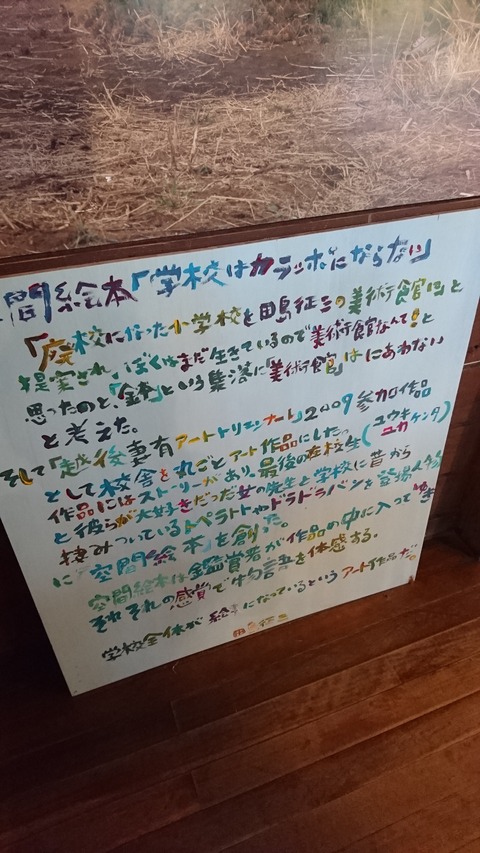 間絵本「学校はカラッポにならない」
「廃校になった小学校を田島征三の美術館に」と
提案され、ぼくはまだ生きているので美術館なんて!と
思ったのと、「鉢」という集落に「美術館」はにあわない
と考えた。
そして「越後妻有アートトリエンナーレ」2009参加作品
として校舎を丸ごとアート作品にした。
作品にはストーリーがあり、最後の在校生(ユウキ ユカ ケンタ)
と彼らが大好きだった女の先生と学校に昔から
棲みついているトペラトトやドラドラバンを登場人物
に「空間絵本」を創った。
空間絵本は鑑賞者が作品の中に入ってゆき
それぞれの感覚で物語を体感する。
学校全体が絵本になっているというアート作品だ。
田島征三